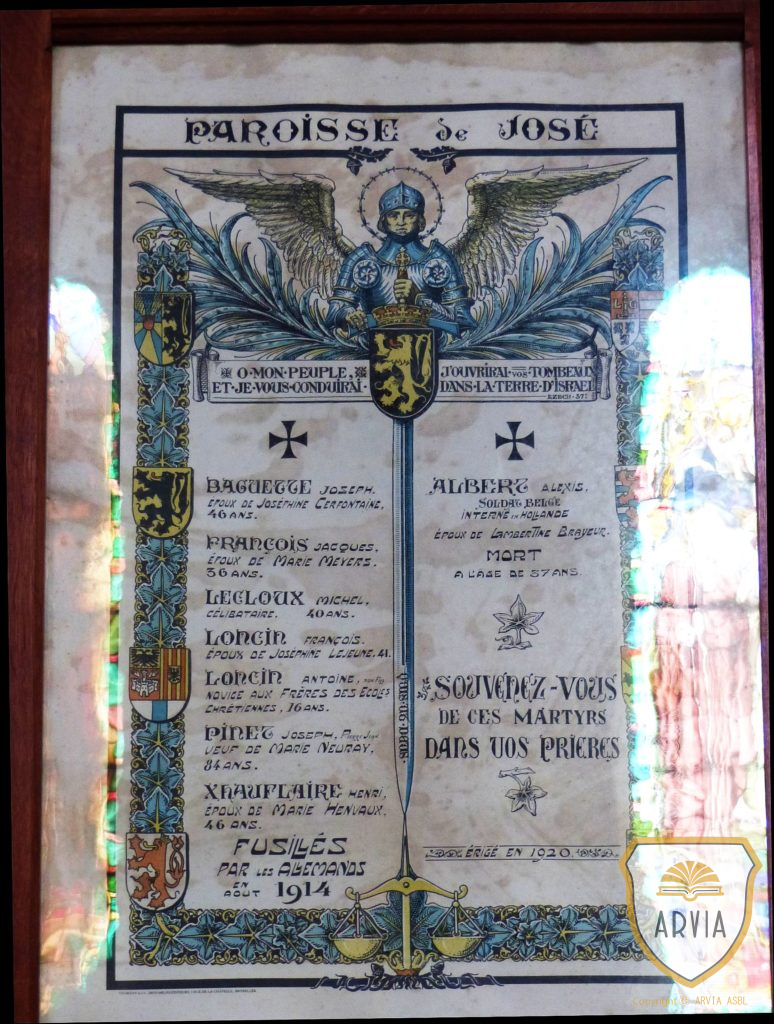 PAROISSE de JOSÉ
O·MON·PEUPLE, J'OUVRIRAI·VOS·TOMBEAUX
ET·JE·VOUS·CONDUIRAI· DANS·LA·TERRE·D'ISRAEL
EZECH·37
BAGUETTE JOSEPH.
ÉPOUX DE JOSÉPHINE CERFONTAINE,
46 ANS.
FRANÇOIS JACQUES,
ÉPOUX DE MARIE MEYERS.
36 ANS.
LECLOUX MICHEL,
CÉLIBATAIRE. 40 ANS.
LONCIN FRANÇOIS.
ÉPOUX DE JOSÉPHINE LEJEUNE, 41.
LONCIN ANTOINE,
NOVICE AUX FRÈRES DES ECOLES
CHRÉTIENNES, 16 ANS.
PINET JOSEPH,
VEUF DE MARIE NEURAY,
84 ANS.
XHAUFLAIRE HENRI,
ÉPOUX DE MARIE HENVAUX,
46 ANS.
FUSILLÉS
PAR LES ALLEMANDS
EN
AOUT 1914
ALBERT ALEXIS,
SOLDAT BELGE
INTERNÉ EN HOLLANDE
ÉPOUX DE LAMBERTINE BRAYEUR.
MORT
A L'ÂGE DE 37 ANS.
SOUVENEZ-VOUS
DE CES MARTYRS
DANS VOS PRIERES
ÉRIGÉ EN 1920.
ARVIA
Copyright © ARVIA ASBL